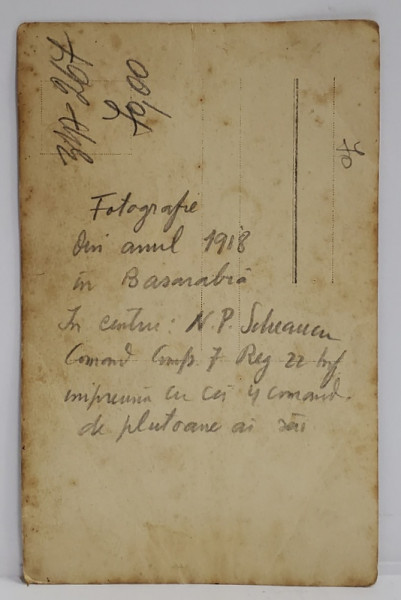 317-267
70,00
70
Fotografie
din anul 1918
în Basarabia
În centru: N. P.
Comand Comp. 7 Reg 22 Inf
împreună cu cei 4 comand.
de plutoane ai săi